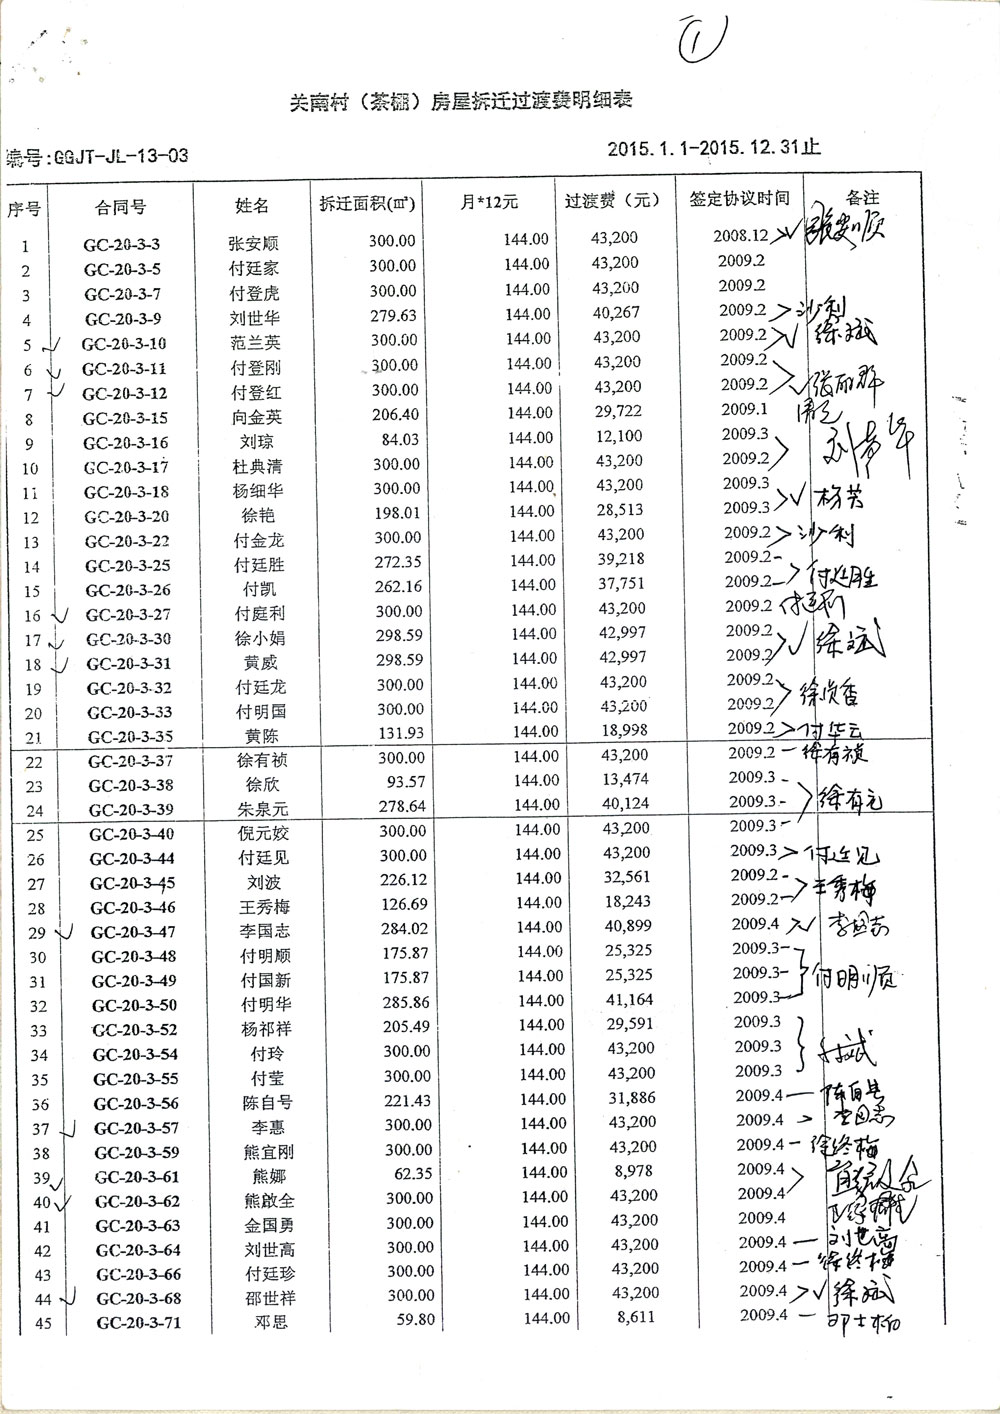 ①
关南村（茶棚）房屋拆迁过渡费明细表
编号:GGJT-JL-13-03 2015.1.1-2015.12.31止
序号 合同号 姓名 拆迁面积(㎡) 月*12元 过渡费（元） 签定协议时间 备注
1 GC-20-3-3 张安顺 300.00 144.00 43,200 2008.12 张安顺
2 GC-20-3-5 付廷家 300.00 144.00 43,200 2009.2
3 GC-20-3-7 付登虎 300.00 144.00 43,200 2009.2
4 GC-20-3-9 刘世华 279.63 144.00 40,267 2009.2 沙利
5 GC-20-3-10 范兰英 300.00 144.00 43,200 2009.2 徐斌
6 GC-20-3-11 付登刚 300.00 144.00 43,200 2009.2
7 GC-20-3-12 付登红 300.00 144.00 43,200 2009.2 张丽群
8 GC-20-3-15 向金英 206.40 144.00 29,722 2009.1
9 GC-20-3-16 刘琼 84.03 144.00 12,100 2009.3
10 GC-20-3-17 杜典清 300.00 144.00 43,200 2009.2
11 GC-20-3-18 杨细华 300.00 144.00 43,200 2009.3
12 GC-20-3-20 徐艳 198.01 144.00 28,513 2009.3 杨芳
13 GC-20-3-22 付金龙 300.00 144.00 43,200 2009.2 沙利
14 GC-20-3-25 付廷胜 272.35 144.00 39,218 2009.2
15 GC-20-3-26 付凯 262.16 144.00 37,751 2009.2 付廷胜
16 GC-20-3-27 付庭利 300.00 144.00 43,200 2009.2
17 GC-20-3-30 徐小娟 298.59 144.00 42,997 2009.2 徐斌
18 GC-20-3-31 黄威 298.59 144.00 42,997 2009.2
19 GC-20-3-32 付廷龙 300.00 144.00 43,200 2009.2
20 GC-20-3-33 付明国 300.00 144.00 43,200 2009.2
21 GC-20-3-35 黄陈 131.93 144.00 18,998 2009.2 付华云
22 GC-20-3-37 徐有祯 300.00 144.00 43,200 2009.2 徐有祯
23 GC-20-3-38 徐欣 93.57 144.00 13,474 2009.3
24 GC-20-3-39 朱泉元 278.64 144.00 40,124 2009.3 徐有元
25 GC-20-3-40 倪元姣 300.00 144.00 43,200 2009.3
26 GC-20-3-44 付廷见 300.00 144.00 43,200 2009.3 付廷见
27 GC-20-3-45 刘波 226.12 144.00 32,561 2009.2
28 GC-20-3-46 王秀梅 126.69 144.00 18,243 2009.2 王秀梅
29 GC-20-3-47 李国志 284.02 144.00 40,899 2009.4 李国志
30 GC-20-3-48 付明顺 175.87 144.00 25,325 2009.3
31 GC-20-3-49 付国新 175.87 144.00 25,325 2009.3 付明顺
32 GC-20-3-50 付明华 285.86 144.00 41,164 2009.3
33 GC-20-3-52 杨祁祥 205.49 144.00 29,591 2009.3
34 GC-20-3-54 付玲 300.00 144.00 43,200 2009.3 付斌
35 GC-20-3-55 付莹 300.00 144.00 43,200 2009.3
36 GC-20-3-56 陈自号 221.43 144.00 31,886 2009.4 陈自号
37 GC-20-3-57 李惠 300.00 144.00 43,200 2009.4 李国志
38 GC-20-3-59 熊宜刚 300.00 144.00 43,200 2009.4 徐终梅
39 GC-20-3-61 熊娜 62.35 144.00 8,978 2009.4
40 GC-20-3-62 熊啟全 300.00 144.00 43,200 2009.4
41 GC-20-3-63 金国勇 300.00 144.00 43,200 2009.4
42 GC-20-3-64 刘世高 300.00 144.00 43,200 2009.4 刘世高
43 GC-20-3-66 付廷珍 300.00 144.00 43,200 2009.4 徐终梅
44 GC-20-3-68 邵世祥 300.00 144.00 43,200 2009.4 徐斌
45 GC-20-3-71 邓思 59.80 144.00 8,611 2009.4